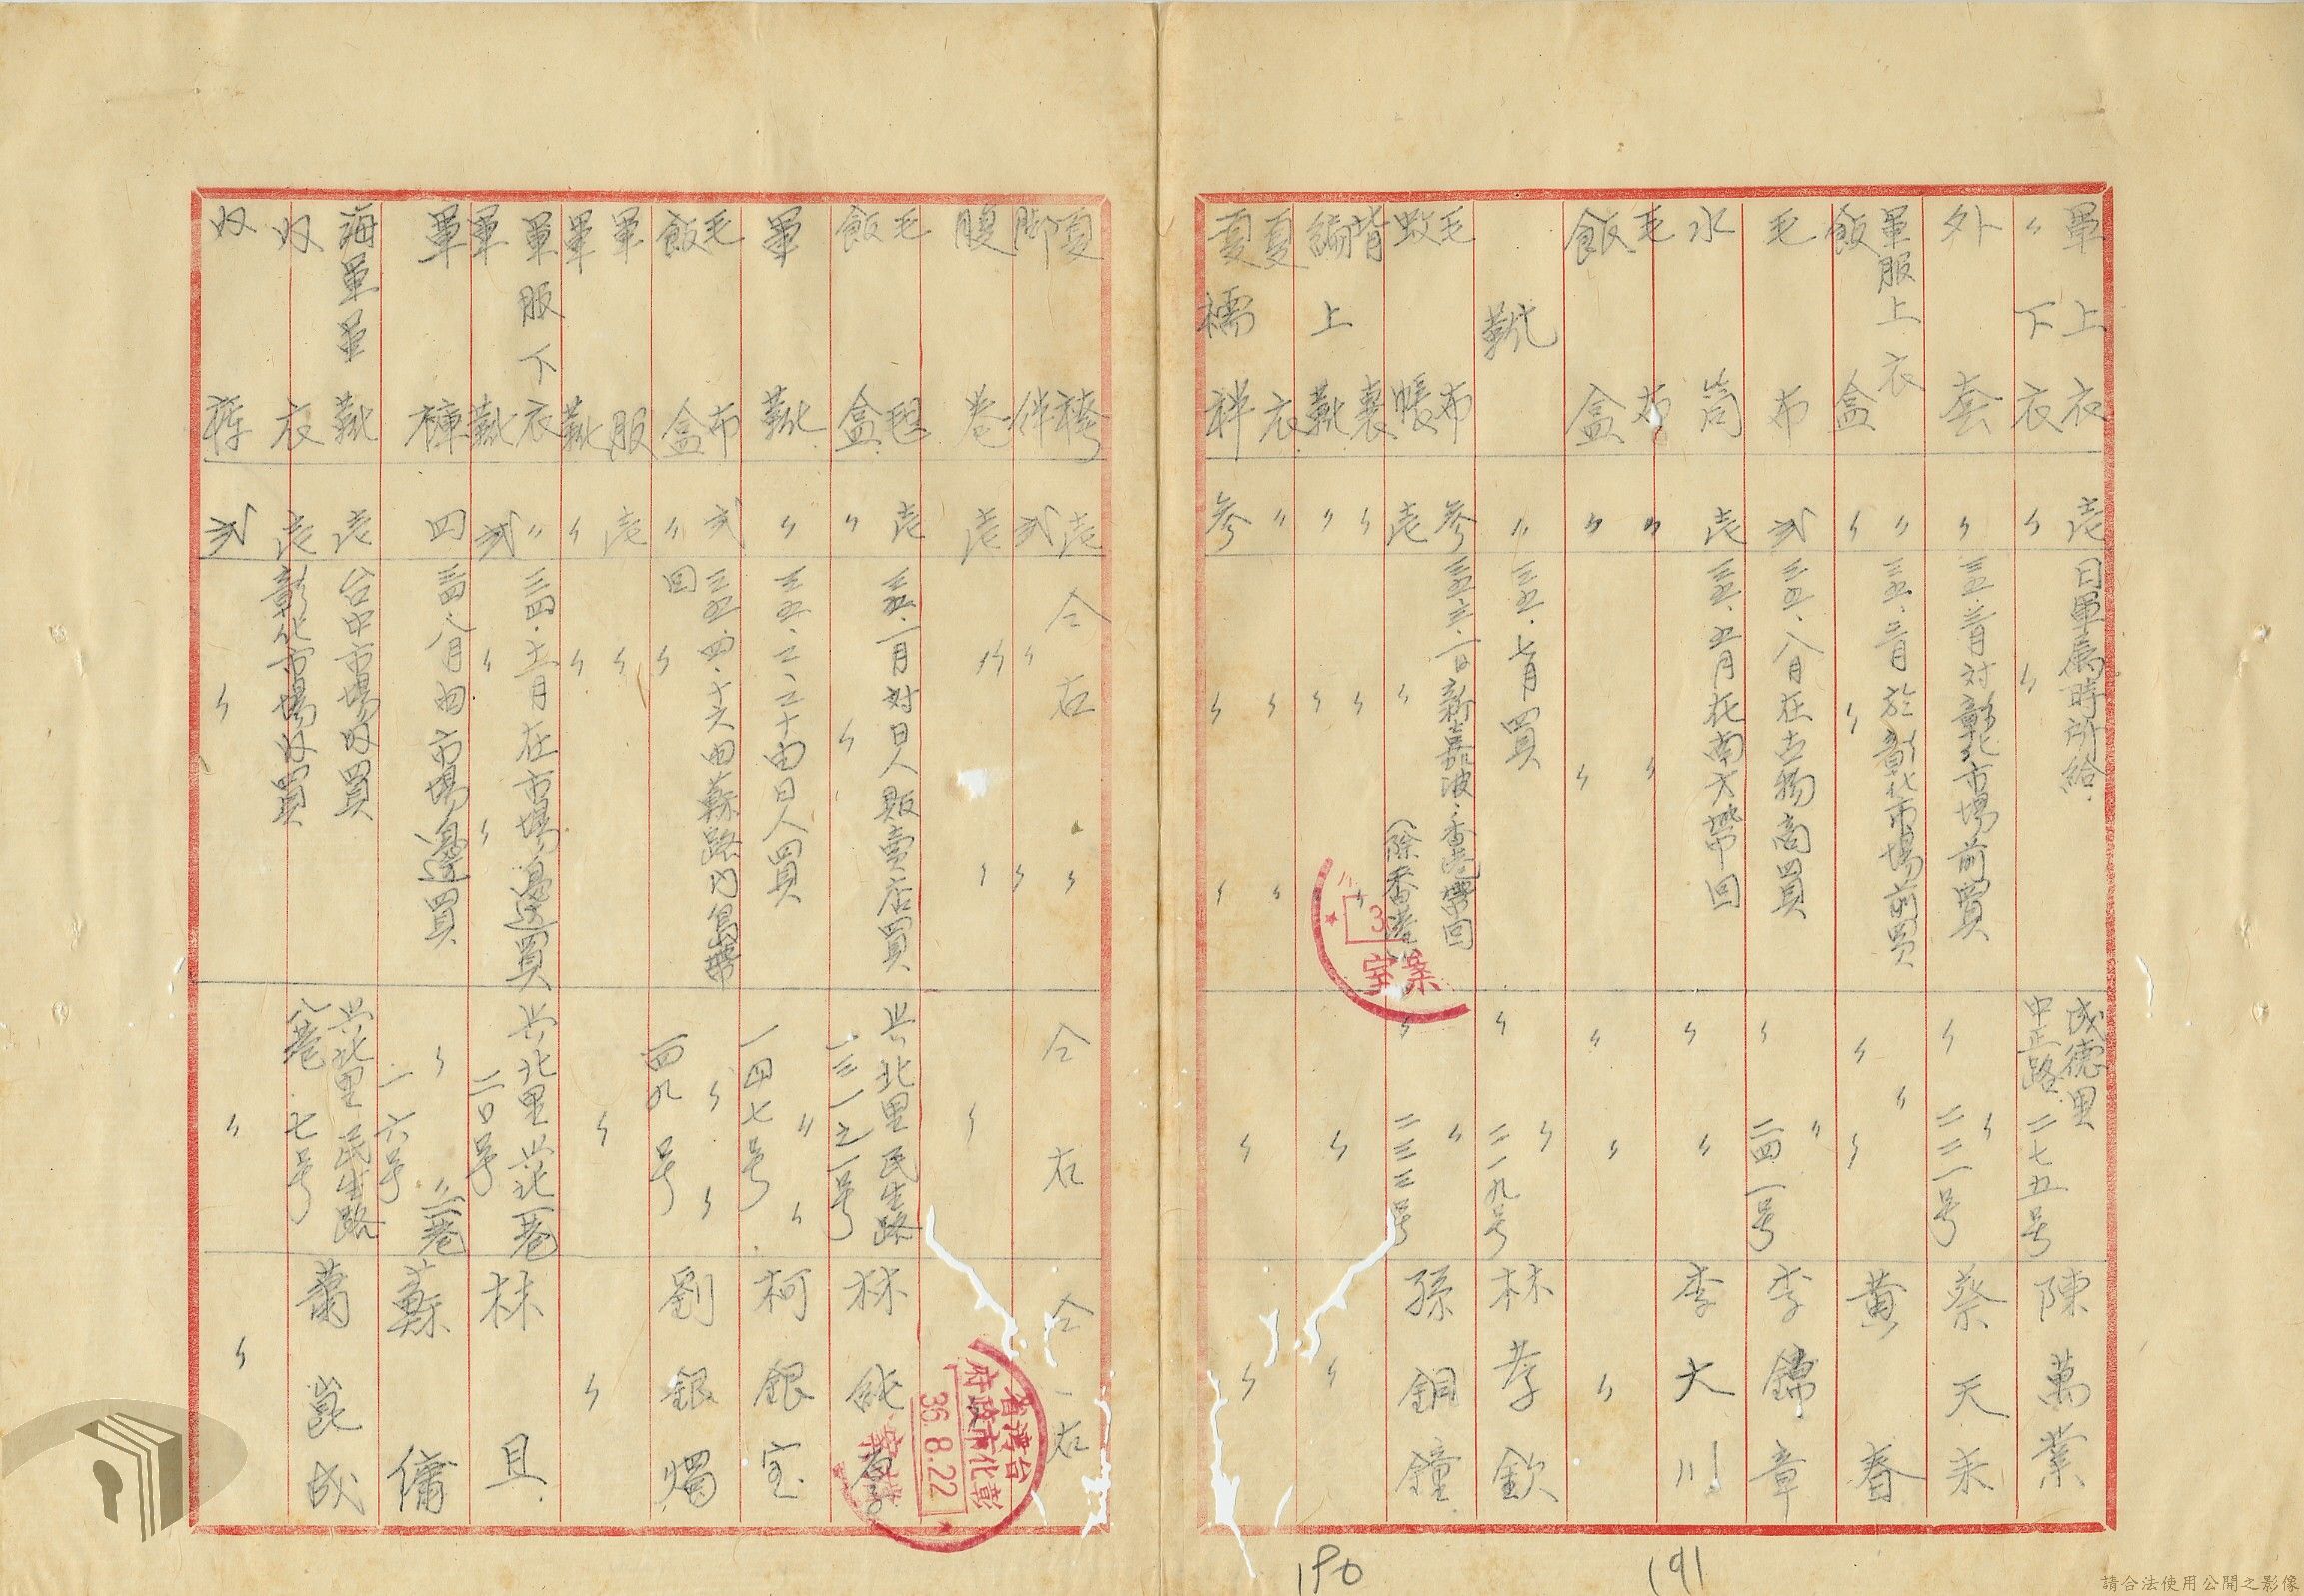 軍上衣 壱 日軍属時所給 成德里中正路二七五号 陳萬業
〃下衣 〃 〃
外套 〃 三五・三月対彰化市場前買 〃 〃二二一号 蔡天来
軍服上衣 〃 三五・三月於彰化市場前買 〃 〃 黄春
飯盒 〃 〃 〃 〃
毛布 弐 三五・八月在古物商買 〃 〃二四一号 李錦章
水筒 壱 三五・五月在南大帶回 〃 〃 李大川
毛布 〃 〃
飯盒 〃 〃 〃 〃 〃
靴 〃 三五・七月買 〃 〃二一九号 林孝欽
毛布 参 三五・六・一日新嘉波・香港帶回 〃 〃二三三号 孫銅鐘
蚊帳 壱 〃 (除香港
背囊 〃 〃 〃
編上靴 〃 〃 〃 〃
夏衣 〃 〃 〃
夏襦袢 参 〃 〃 〃 〃
夏袴 壱 仝右 〃 仝右 仝右
脚绊 弐 〃 〃
腹巻 壱 〃 〃 〃
毛毯 壱 三五・一月対日人販売店買 共北里民生路一三一之一号 林能
飯盒 〃 〃
軍靴 〃 三五、三、二十由日人買 〃 〃一四七号 柯銀宝
毛布 弐 三五・四・十六由蘇路内島帶回 〃 〃一四九号 劉銀燭
飯盒 〃 〃
軍服 壱 〃
軍靴 〃 〃 〃 〃
軍服下衣 〃 三四・十二月在市場邊買 共北里共北一巷二〇号 林且
軍靴 弐 〃 〃
軍褲 四 三四・八月由市場邊買 〃 〃二巷一六号 蘇傭
海軍軍靴 壱 台中市場收買 共北里民生路八巷七号 蕭崑成
奴衣 壱 彰化市場收買
奴褲 弐 〃 〃 〃
3
室 業
台灣省
彰化市政府
36.8.22
190
191
請合法使用公開之影像